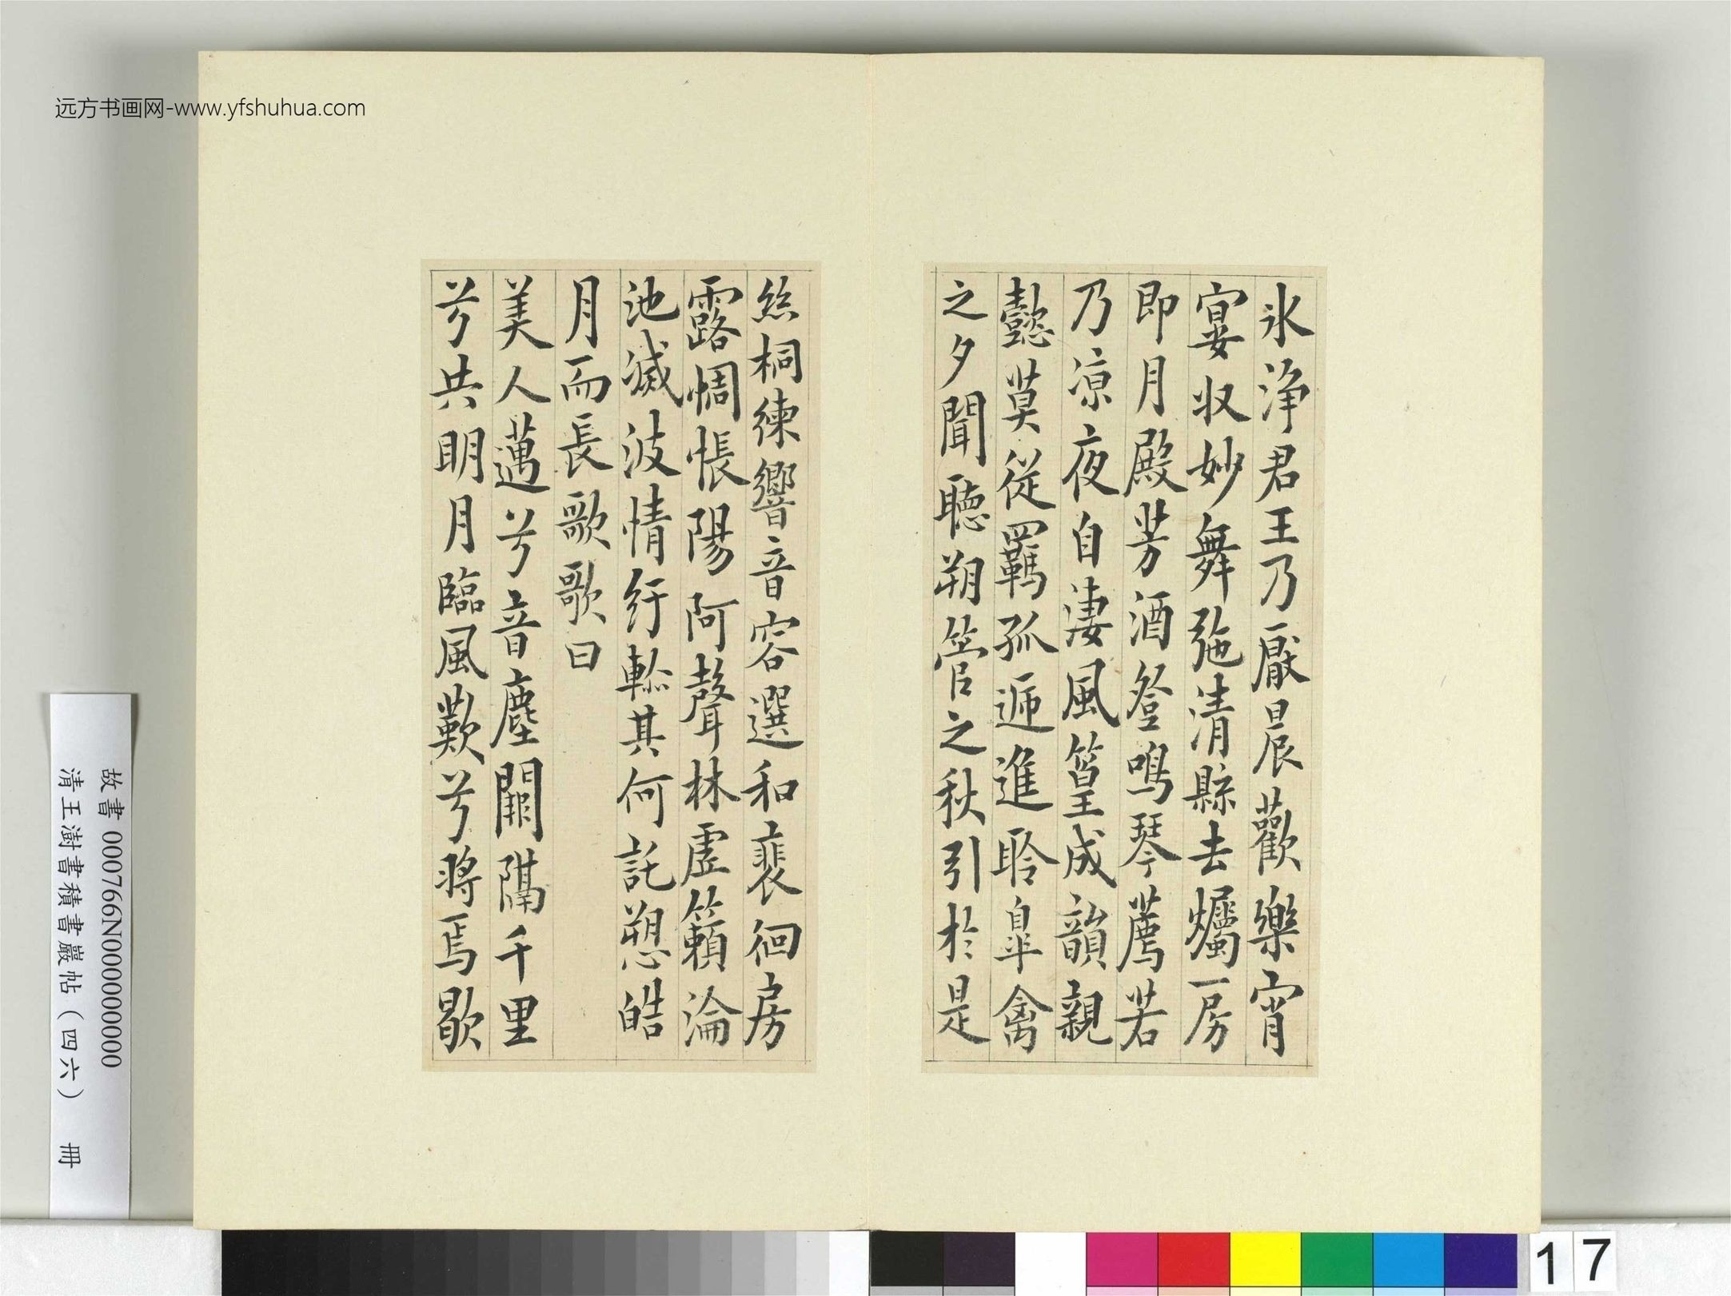 远方书画网-www.yfshuhua.com
氷浄君王乃厭晨歡樂宵
宴收妙舞弛清縣去爥房
即月殿芳酒登鳴琴薦若
乃凉夜自淒風篁成韻親
懿莫從羈孤遞進聆皋禽
之夕聞聽朔管之秋引於是
絲桐練響音容選和裴徊房
露惆悵陽阿聲林虛籟淪
池滅波情紆軫其何託愬皓
月而長歌歌曰
美人邁兮音塵闕隔千里
兮共明月臨風歎兮將焉歇
故書 000766N000000000
清王澍書積書巖帖（四六） 冊
17